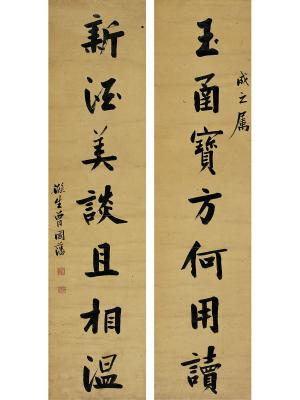 成之屬
玉函寶方何用讀
新酒美談且相溫
滌生曾國藩